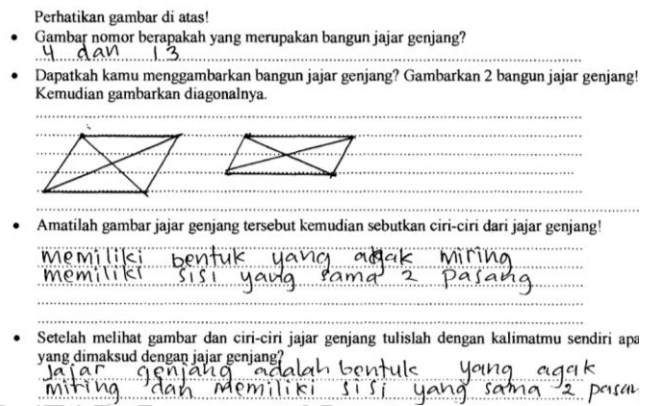 Perhatikan gambar di atas!
• Gambar nomor berapakah yang merupakan bangun jajar genjang?
4 dan 13
• Dapatkah kamu menggambarkan bangun jajar genjang? Gambarkan 2 bangun jajar genjang!
Kemudian gambarkan diagonalnya.
• Amatilah gambar jajar genjang tersebut kemudian sebutkan ciri-ciri dari jajar genjang!
memiliki bentuk yang agak miring
memiliki sisi yang sama 2 pasang
• Setelah melihat gambar dan ciri-ciri jajar genjang tulislah dengan kalimatmu sendiri apa
yang dimaksud dengan jajar genjang?
Jajar genjang adalah bentuk yang agak
miring dan memiliki sisi yang sama 2 pasan